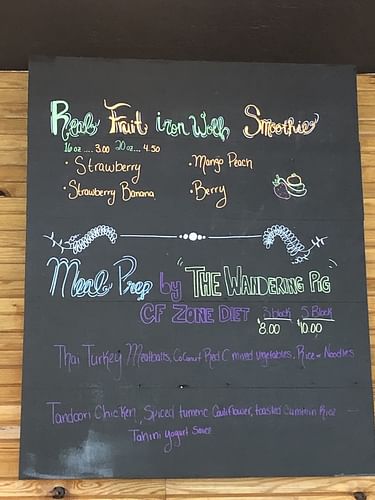 Real Fruit iron Wolk Smoothie
16 oz .... 3.00 20 oz ... 4.50
• Strawberry
• Mango Peach
• Strawberry Banana
• Berry
Meal Prep by "THE WANDERING PIG"
CF ZONE DIET
3 block 5 Block
$8.00 $10.00
Thai Turkey Meatballs, Coconut Red C mixed vegetables, Rice or Noodles
Tandoori Chicken, Spiced tumeric Cauliflower, toasted Rice
Tahini Yogurt Sauce